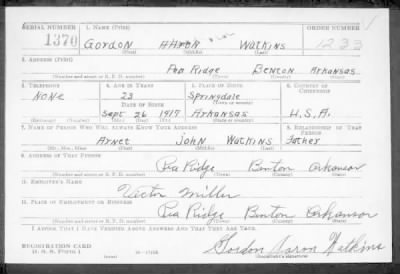 SERIAL NUMBER 1. NAME (Print) ORDER NUMBER
1370 GORDON AARON WATKINS 1233
(First) (Middle) (Last)
2. ADDRESS (Print)
Pea Ridge Benton Arkansas
(Number and street or R. F. D. number) (Town) (County) (State)
3. TELEPHONE 4. AGE IN YEARS 5. PLACE OF BIRTH 6. COUNTRY OF CITIZENSHIP
None 23 Springdale
DATE OF BIRTH (Town or county)
Sept 26 1917 Arkansas U.S.A.
(Exchange) (Number) (Mo.) (Day) (Yr.) (State or country)
7. NAME OF PERSON WHO WILL ALWAYS KNOW YOUR ADDRESS 8. RELATIONSHIP OF THAT PERSON
Arnet John Watkins Father
(Mr., Mrs., Miss) (First) (Middle) (Last)
9. ADDRESS OF THAT PERSON
Pea Ridge Benton Arkansas
(Number and street or R. F. D. number) (Town) (County) (State)
10. EMPLOYER'S NAME
Victor Miller
11. PLACE OF EMPLOYMENT OR BUSINESS
Pea Ridge Benton Arkansas
(Number and street or R. F. D. number) (Town) (County) (State)
I AFFIRM THAT I HAVE VERIFIED ABOVE ANSWERS AND THAT THEY ARE TRUE.
REGISTRATION CARD
D. S. S. Form 1 (over) 16-17105 Gordon Aaron Watkins
(Registrant's signature)